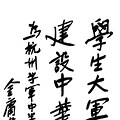 學生大軍
建設中華
為杭州學軍中學
金庸